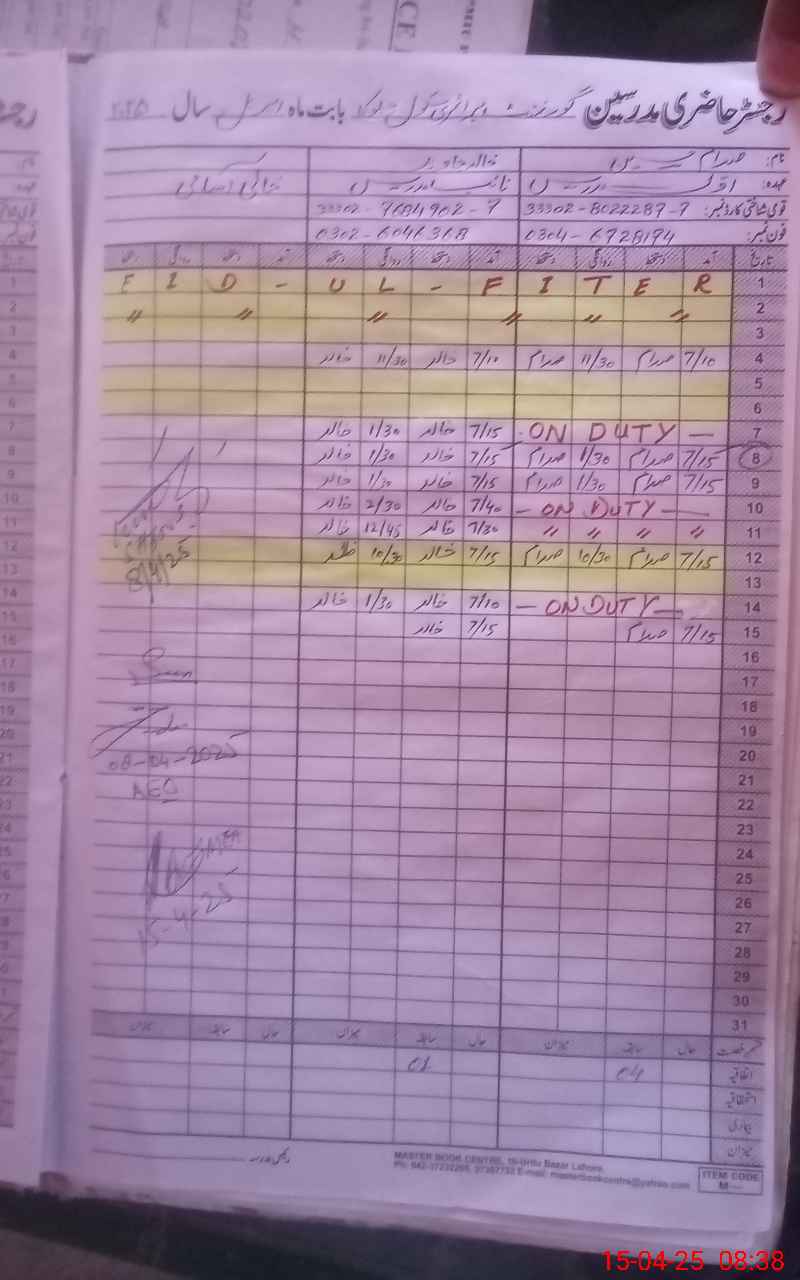 رجسٹر حاضری مدرسین گورنمنٹ بابت ماہ اپریل سال ۲۰۲۵
نام: صدام حسین خالد جاوید
عہدہ: اول مدرس نائب مدرس خالی آسامی
قومی شناختی کارڈ نمبر: 33302-8022287-7 33302-7684902-7
فون نمبر: 0304-6728194 0302-6046368
تاریخ آمد دستخط روانگی دستخط آمد دستخط روانگی دستخط آمد دستخط روانگی دستخط
1 E I D - U L - F I T E R
2 " " " " " "
3
4 7/10 صدام 11/30 صدام 7/10 خالد 11/30 خالد
5
6
7 - ON DUTY - 7/15 خالد 1/30 خالد
8 7/15 صدام 1/30 صدام 7/15 خالد 1/30 خالد
9 7/15 صدام 1/30 صدام 7/15 خالد 1/30 خالد
10 - ON DUTY - 7/40 خالد 2/30 خالد
11 " " " " 7/30 خالد 12/45 خالد
12 7/15 صدام 10/30 صدام 7/15 خالد 10/30 خالد
13
8/4/25
14 - ON DUTY - 7/10 خالد 1/30 خالد
15 7/15 صدام 7/15 خالد
16
17
18
19
20
08-04-2025
21
AEO
22
23
24
25
26
15-4-25
27
28
29
30
31
قسم رخصت حال سابقہ میزان حال سابقہ میزان حال سابقہ میزان
اتفاقیہ 04 01
استحقاقیہ
بیماری
میزان
رئیس مدرسہ
MASTER BOOK CENTRE, 16-Urdu Bazar Lahore.
Ph: 042-37232265, 37357732 E-mail: masterbookcentre@yahoo.com
ITEM CODE
M---
15-04-25 08:38